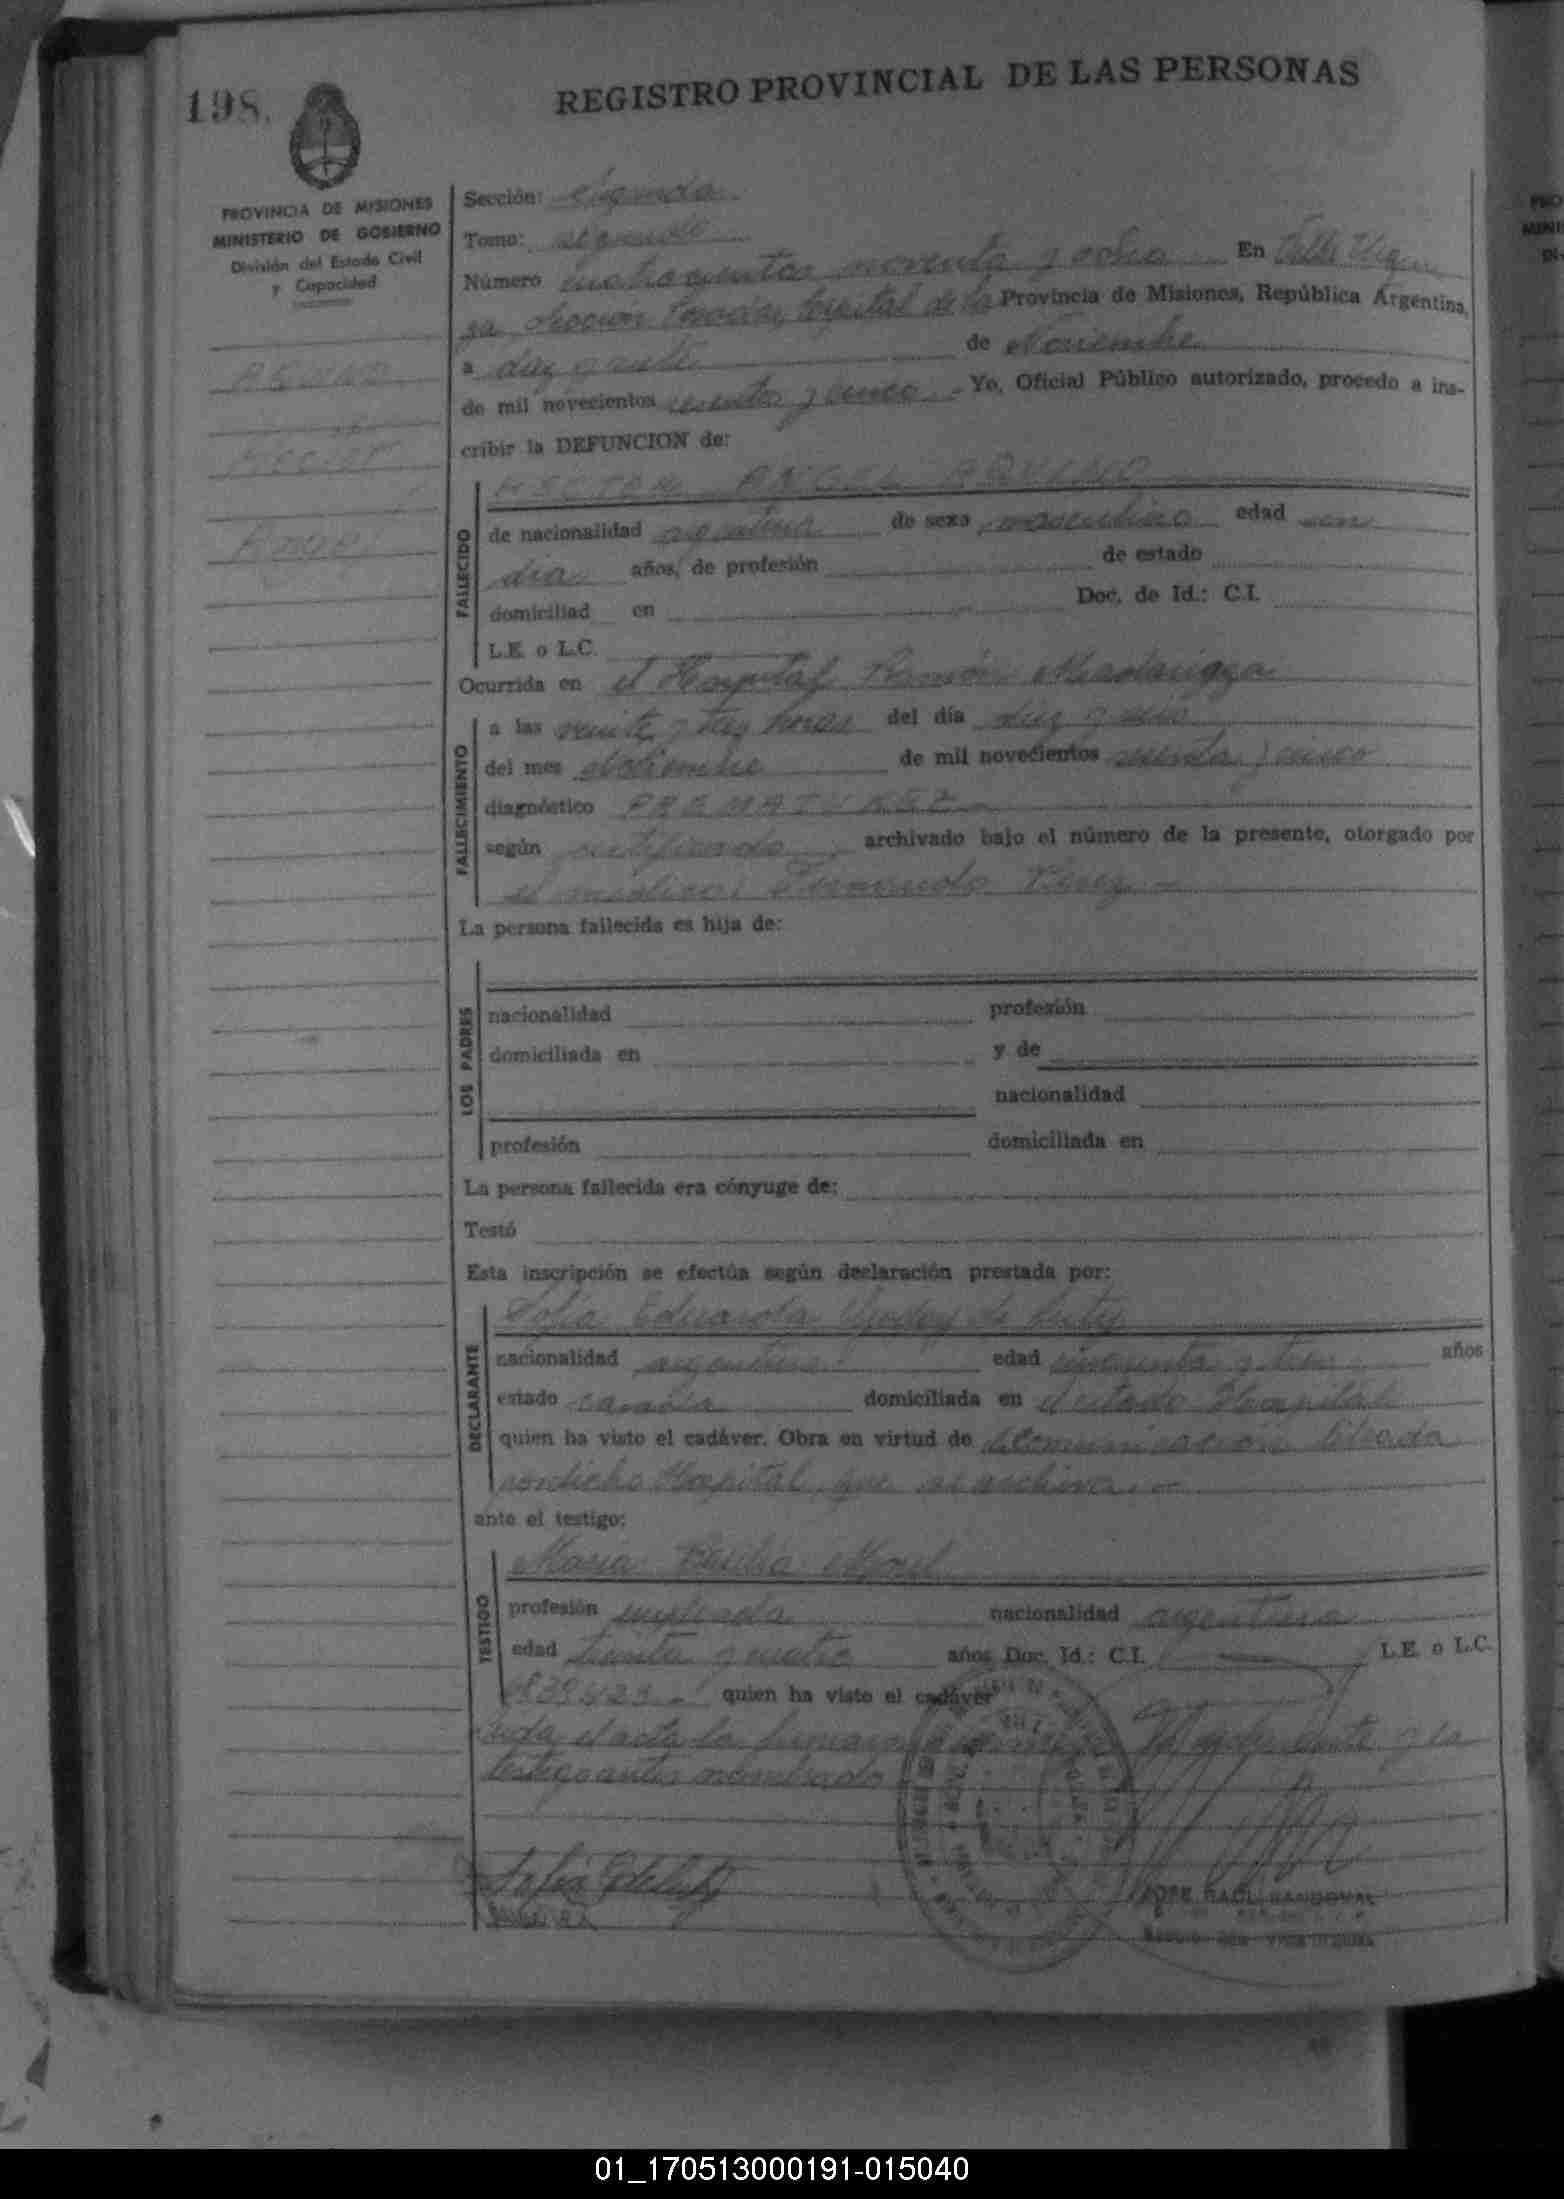 198.
REGISTRO PROVINCIAL DE LAS PERSONAS
PROVINCIA DE MISIONES
MINISTERIO DE GOBIERNO
División del Estado Civil
y Capacidad
AQUINO
Hector
Angel
Sección: segunda
Tomo: segundo
Número cuatrocientos noventa y ocho En Villa Urqui
za, Sección Posadas, Capital de la Provincia de Misiones, República Argentina,
a diez y de Noviembre
de mil novecientos sesenta y cinco.- Yo, Oficial Público autorizado, procedo a ins-
cribir la DEFUNCION de:
FALLECIDO
HECTOR ANGEL AQUINO
de nacionalidad argentina de sexo masculino edad un
día años, de profesión de estado
domiciliad en Doc. de Id.: C.I.
L.E. o L.C.
Ocurrida en el Hospital Ramón Madariaga
FALLECIMIENTO
a las veinte y tres horas del día diez y
del mes de mil novecientos sesenta y cinco
diagnóstico PREMATUREZ
según certificado archivado bajo el número de la presente, otorgado por
el médico: Fernando Pérez.-
La persona fallecida es hija de:
LOS PADRES
nacionalidad profesión
domiciliada en y de
nacionalidad
profesión domiciliada en
La persona fallecida era cónyuge de:
Testó
Esta inscripción se efectúa según declaración prestada por:
DECLARANTE
Sofia Eduarda Godoy de
nacionalidad argentina edad cincuenta y años
estado casada domiciliada en el citado Hospital
quien ha visto el cadáver. Obra en virtud de comunicación librada
por dicho Hospital que se archiva.-
ante el testigo:
TESTIGO
María
profesión empleada nacionalidad argentina
edad treinta y cuatro años Doc. Id.: C.I. L.E. o L.C.
quien ha visto el cadáver
Leída el acta la firman la declarante y la
testigo antes nombrado
JOSE RAUL SANDOVAL
01_170513000191-015040